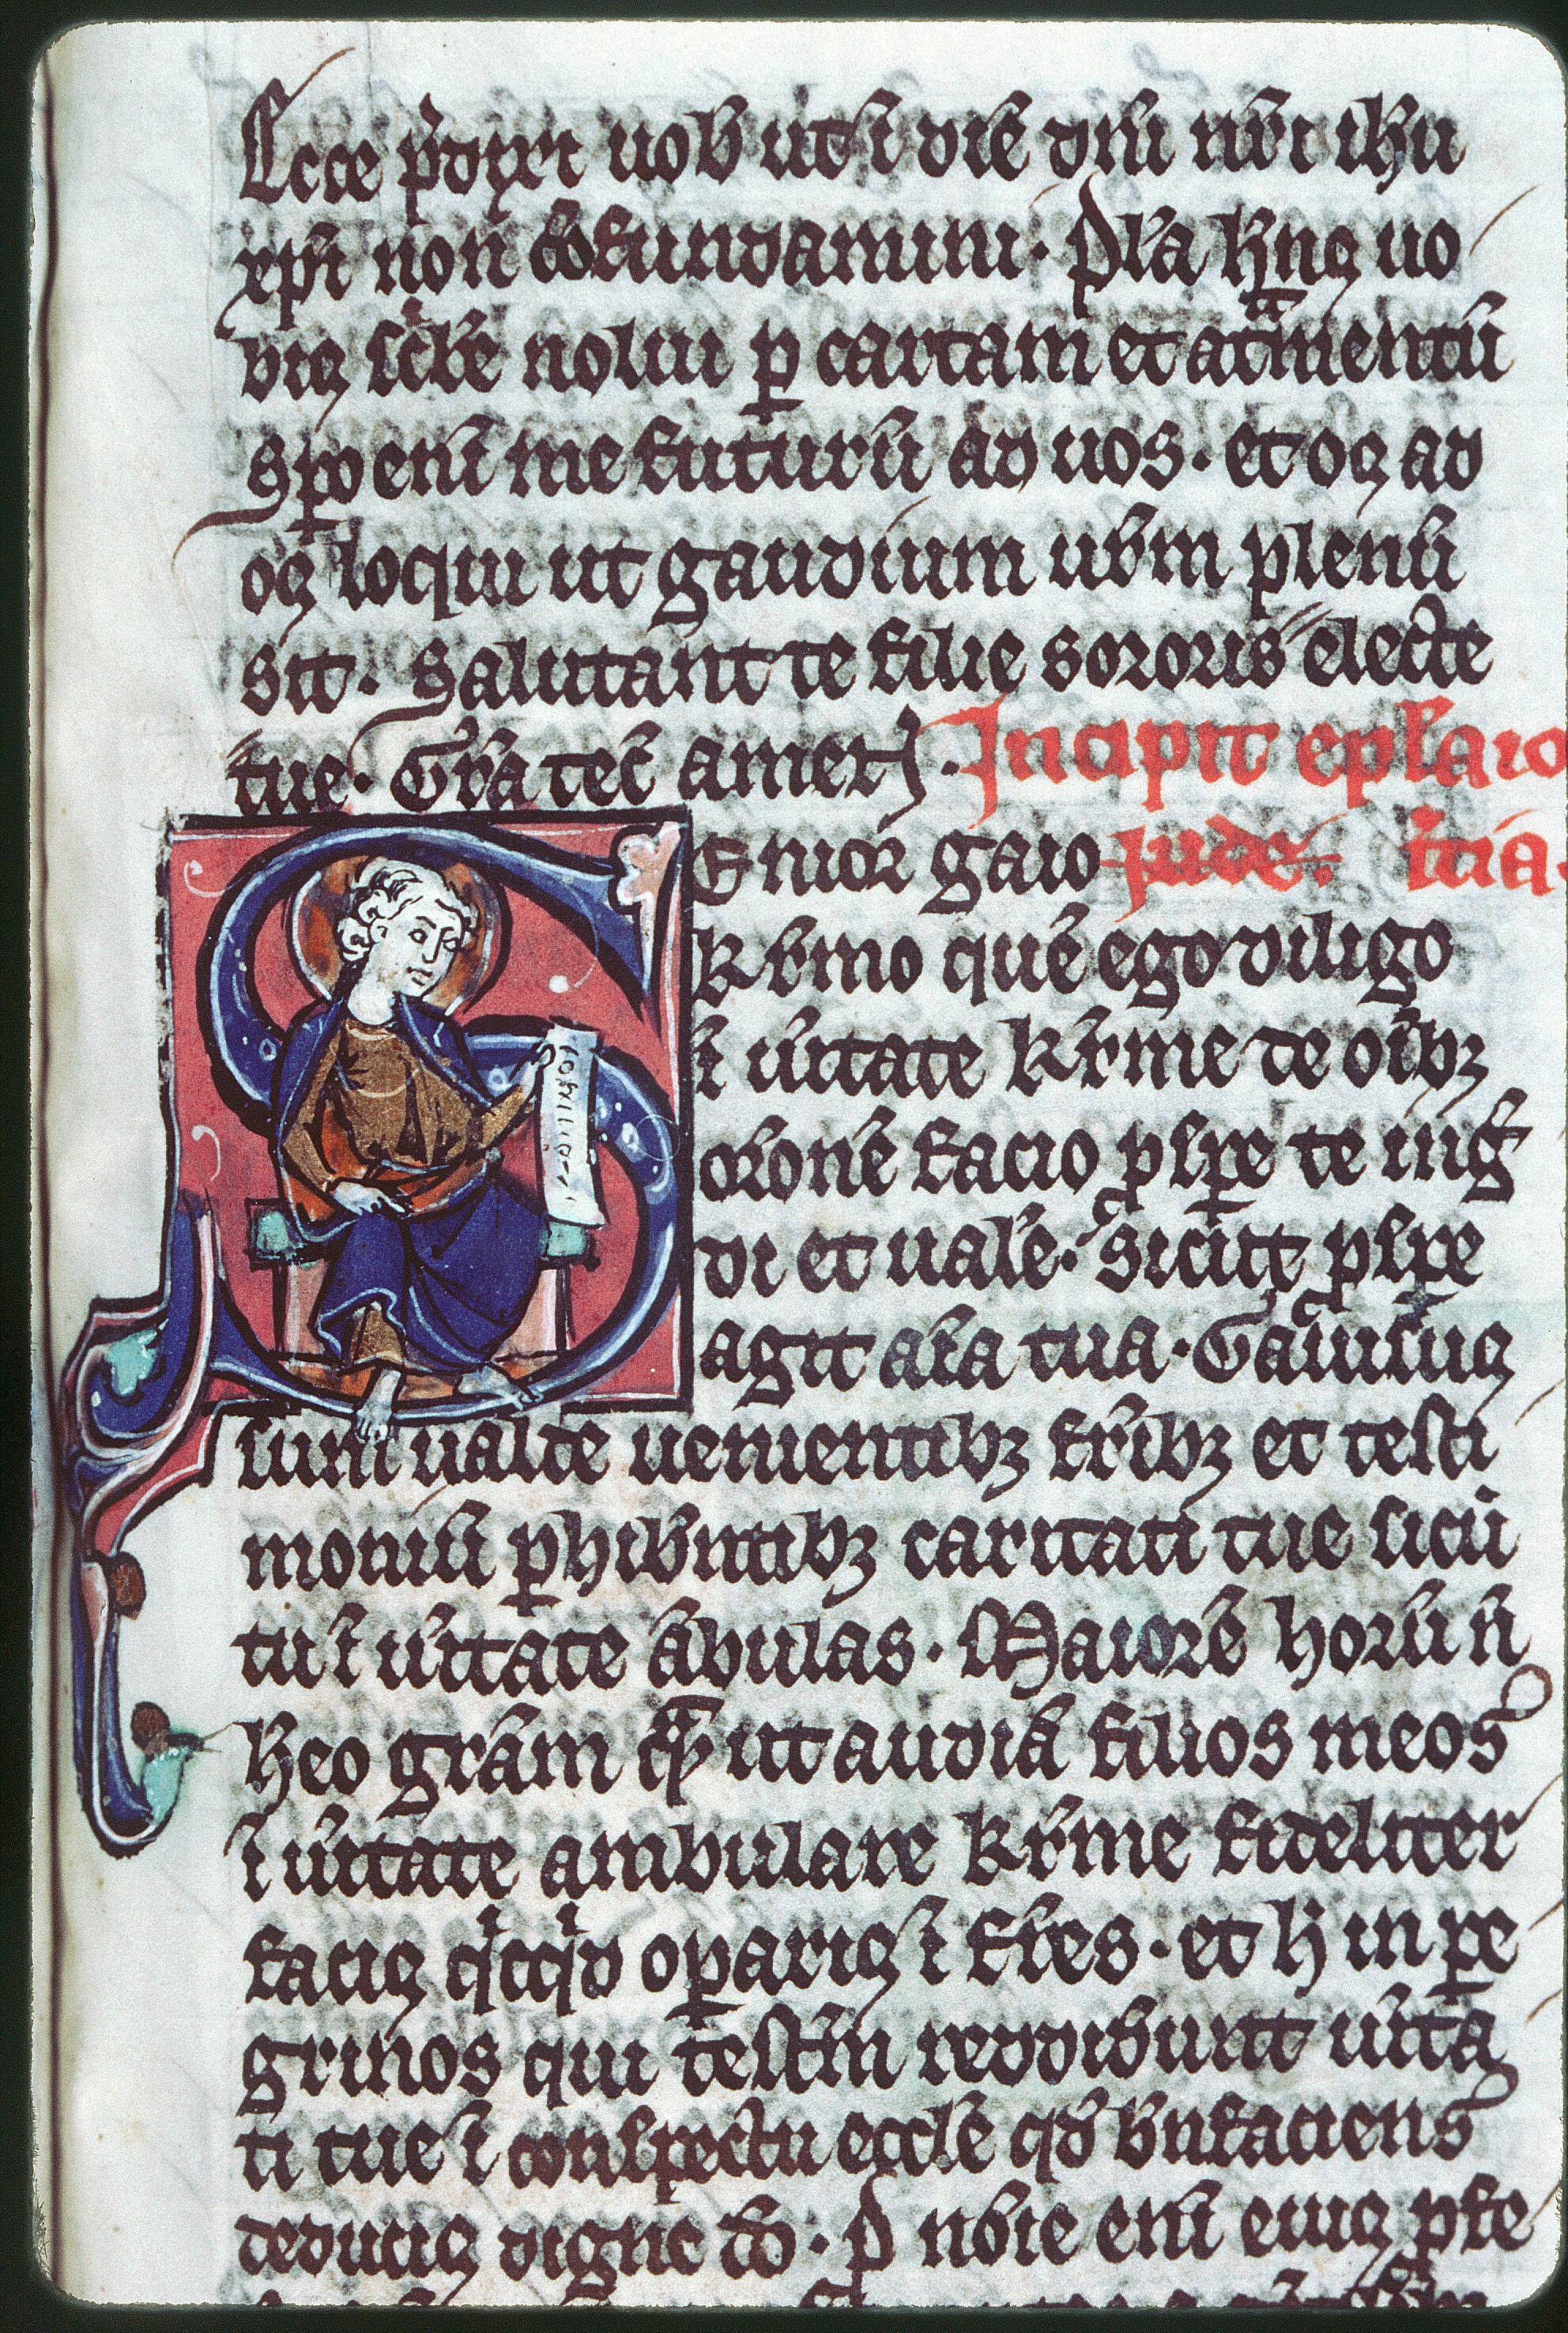 Ecce p̄dixi uob̄ ut ī die dn̄i nr̄i ih̄u
xp̄i non ꝯfundamini. Pl̓a h̄nꝰ uo
biꝰ sc̓be nolui ꝑ cartam et at̓mentū
sꝑo enī me futurū ad uos. et oꝰ ad
oꝰ loqui ut gaudium ur̄m plenū
sit. Salutant te filie sororis electe
tue. Gr̄a tec̄ amen. Incipit epl̄a io
E nior gaio jude. t̓cia.
k̄r̄mo quē ego diligo
ī u̓itate kr̄me de oībꝫ
or̄onē facio ꝓspe te ing̓
di et ual̓e. sicut ꝓspe
agit aīa tua. Gauisuꝰ
sum ualde uenientibꝫ fr̄ibꝫ et testi
moniū ꝑhib̄ntibꝫ caritati tue sicū
tu ī u̓itate ābulas. Maiorē horū n̄
h̄eo gr̄am qͣ̄ ut audiā filios meos
ī u̓itate ambulare kr̄me fideliter
faciꝰ qͥcqͥd oꝑariꝰ ī fr̄es. et h̄ in ꝑe
grinos qui testīm reddidunt u̓ita
ti tue ī conspectu eccl̄e qd̄ b̄nfaciens
deduciꝰ digne dō. P̄ nōie enī eiuꝰ ꝓfe